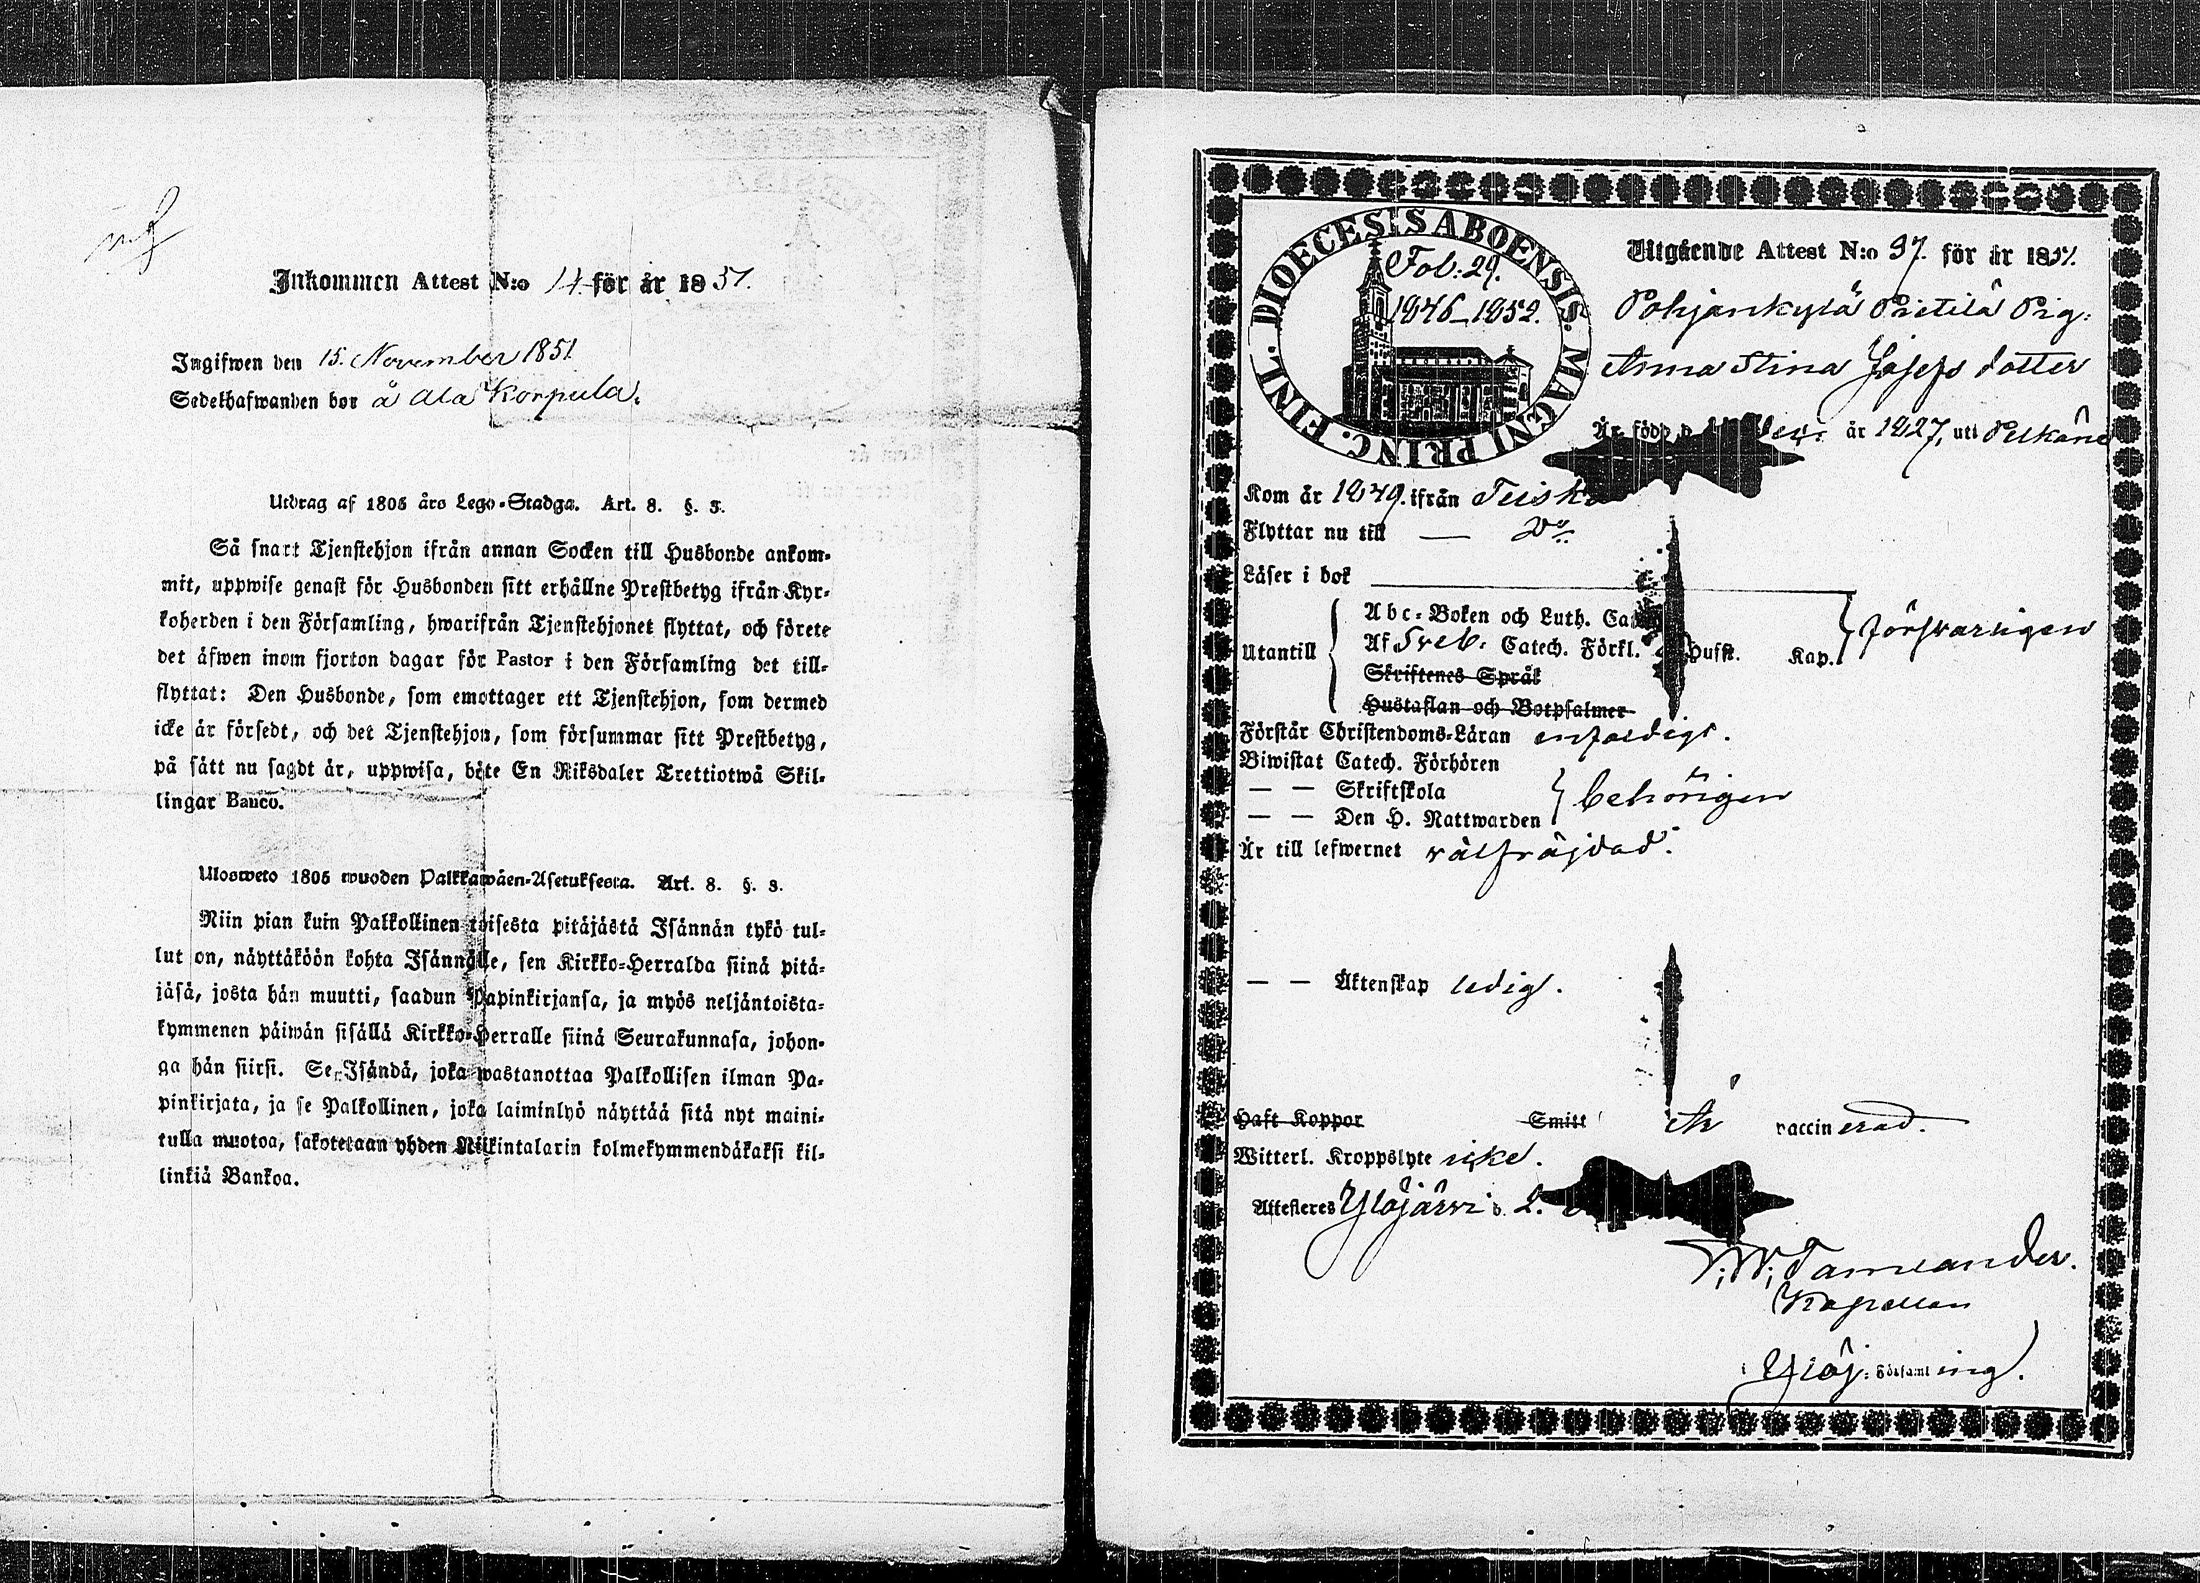 Inkommen Attest N:o 14 för år 1851.
Ingifwen den 15. November 1851
Sedelhafwanden bor å Ala Korpula.
Utdrag af 1805 års Lego-Stadga. Art. 8. §. 3.
Så snart Tjenstehjon ifrån annan Socken till Husbonde ankom-
mit, uppwise genast för Husbonden sitt erhållne Prestbetyg ifrån Kyr-
koherden i den Församling, hwarifrån Tjenstehjonet flyttat, och förete
det äfwen inom fjorton dagar för Pastor i den Församling det till-
flyttat: Den Husbonde, som emottager ett Tjenstehjon, som dermed
icke är försedt, och det Tjenstehjon, som försummar sitt Prestbetyg,
på sätt nu sagdt är, uppwisa, böte En Riksdaler Trettiotwå Skil-
lingar Banco.
Ulosweto 1805 wuoden Palkkawäen-Asetuksesta. Art. 8. §. 3.
Niin pian kuin Palkollinen toisesta pitäjästä Isännän tykö tul-
lut on, näyttäköön kohta Isännälle, sen Kirkko-Herralda siinä pitä-
jäsä, josta hän muutti, saadun Papinkirjansa, ja myös neljäntoista-
kymmenen päiwän sisällä Kirkko-Herralle siinä Seurakunnasa, johon-
ga hän siirsi. Se Isändä, joka wastanottaa Palkollisen ilman Pa-
pinkirjata, ja se Palkollinen, joka laiminlyö näyttää sitä nyt maini-
tulla muotoa, sakotetaan yhden Riikintalarin kolmekymmendäkaksi kil-
linkiä Bankoa.
DIOECESIS ABOENSIS. MAGNI PRINC. FINL.
Fol: 29.
1846-1852.
Utgående Attest N:o 97. för år 1851.
Pohjankylä Pietilä Pig:
Anna Stina Josefs dotter
Är född d. år 1827, uti Pelkäne
Kom år 1849. ifrån
Flyttar nu till — Do
Läser i bok
Utantill
Abc-Boken och Luth.
Af Sveb. Catech. Förkl. Husst. Kap.
försvarligen
Skriftenes Språk
Hustaflan och Botpsalmer
Förstår Christendoms-Läran enfaldigt.
Biwistat Catech. Förhören
— — Skriftskola
— — Den H. Nattwarden
behörigen
Är till lefwernet välfräjdad.
— — Äktenskap ledig.
Haft Koppor Smitt Är vaccinerad.
Witterl. Kroppslyte icke.
Attesteras Ylöjärvi d. 2.
Kapellan
i Ylöj: Församling.